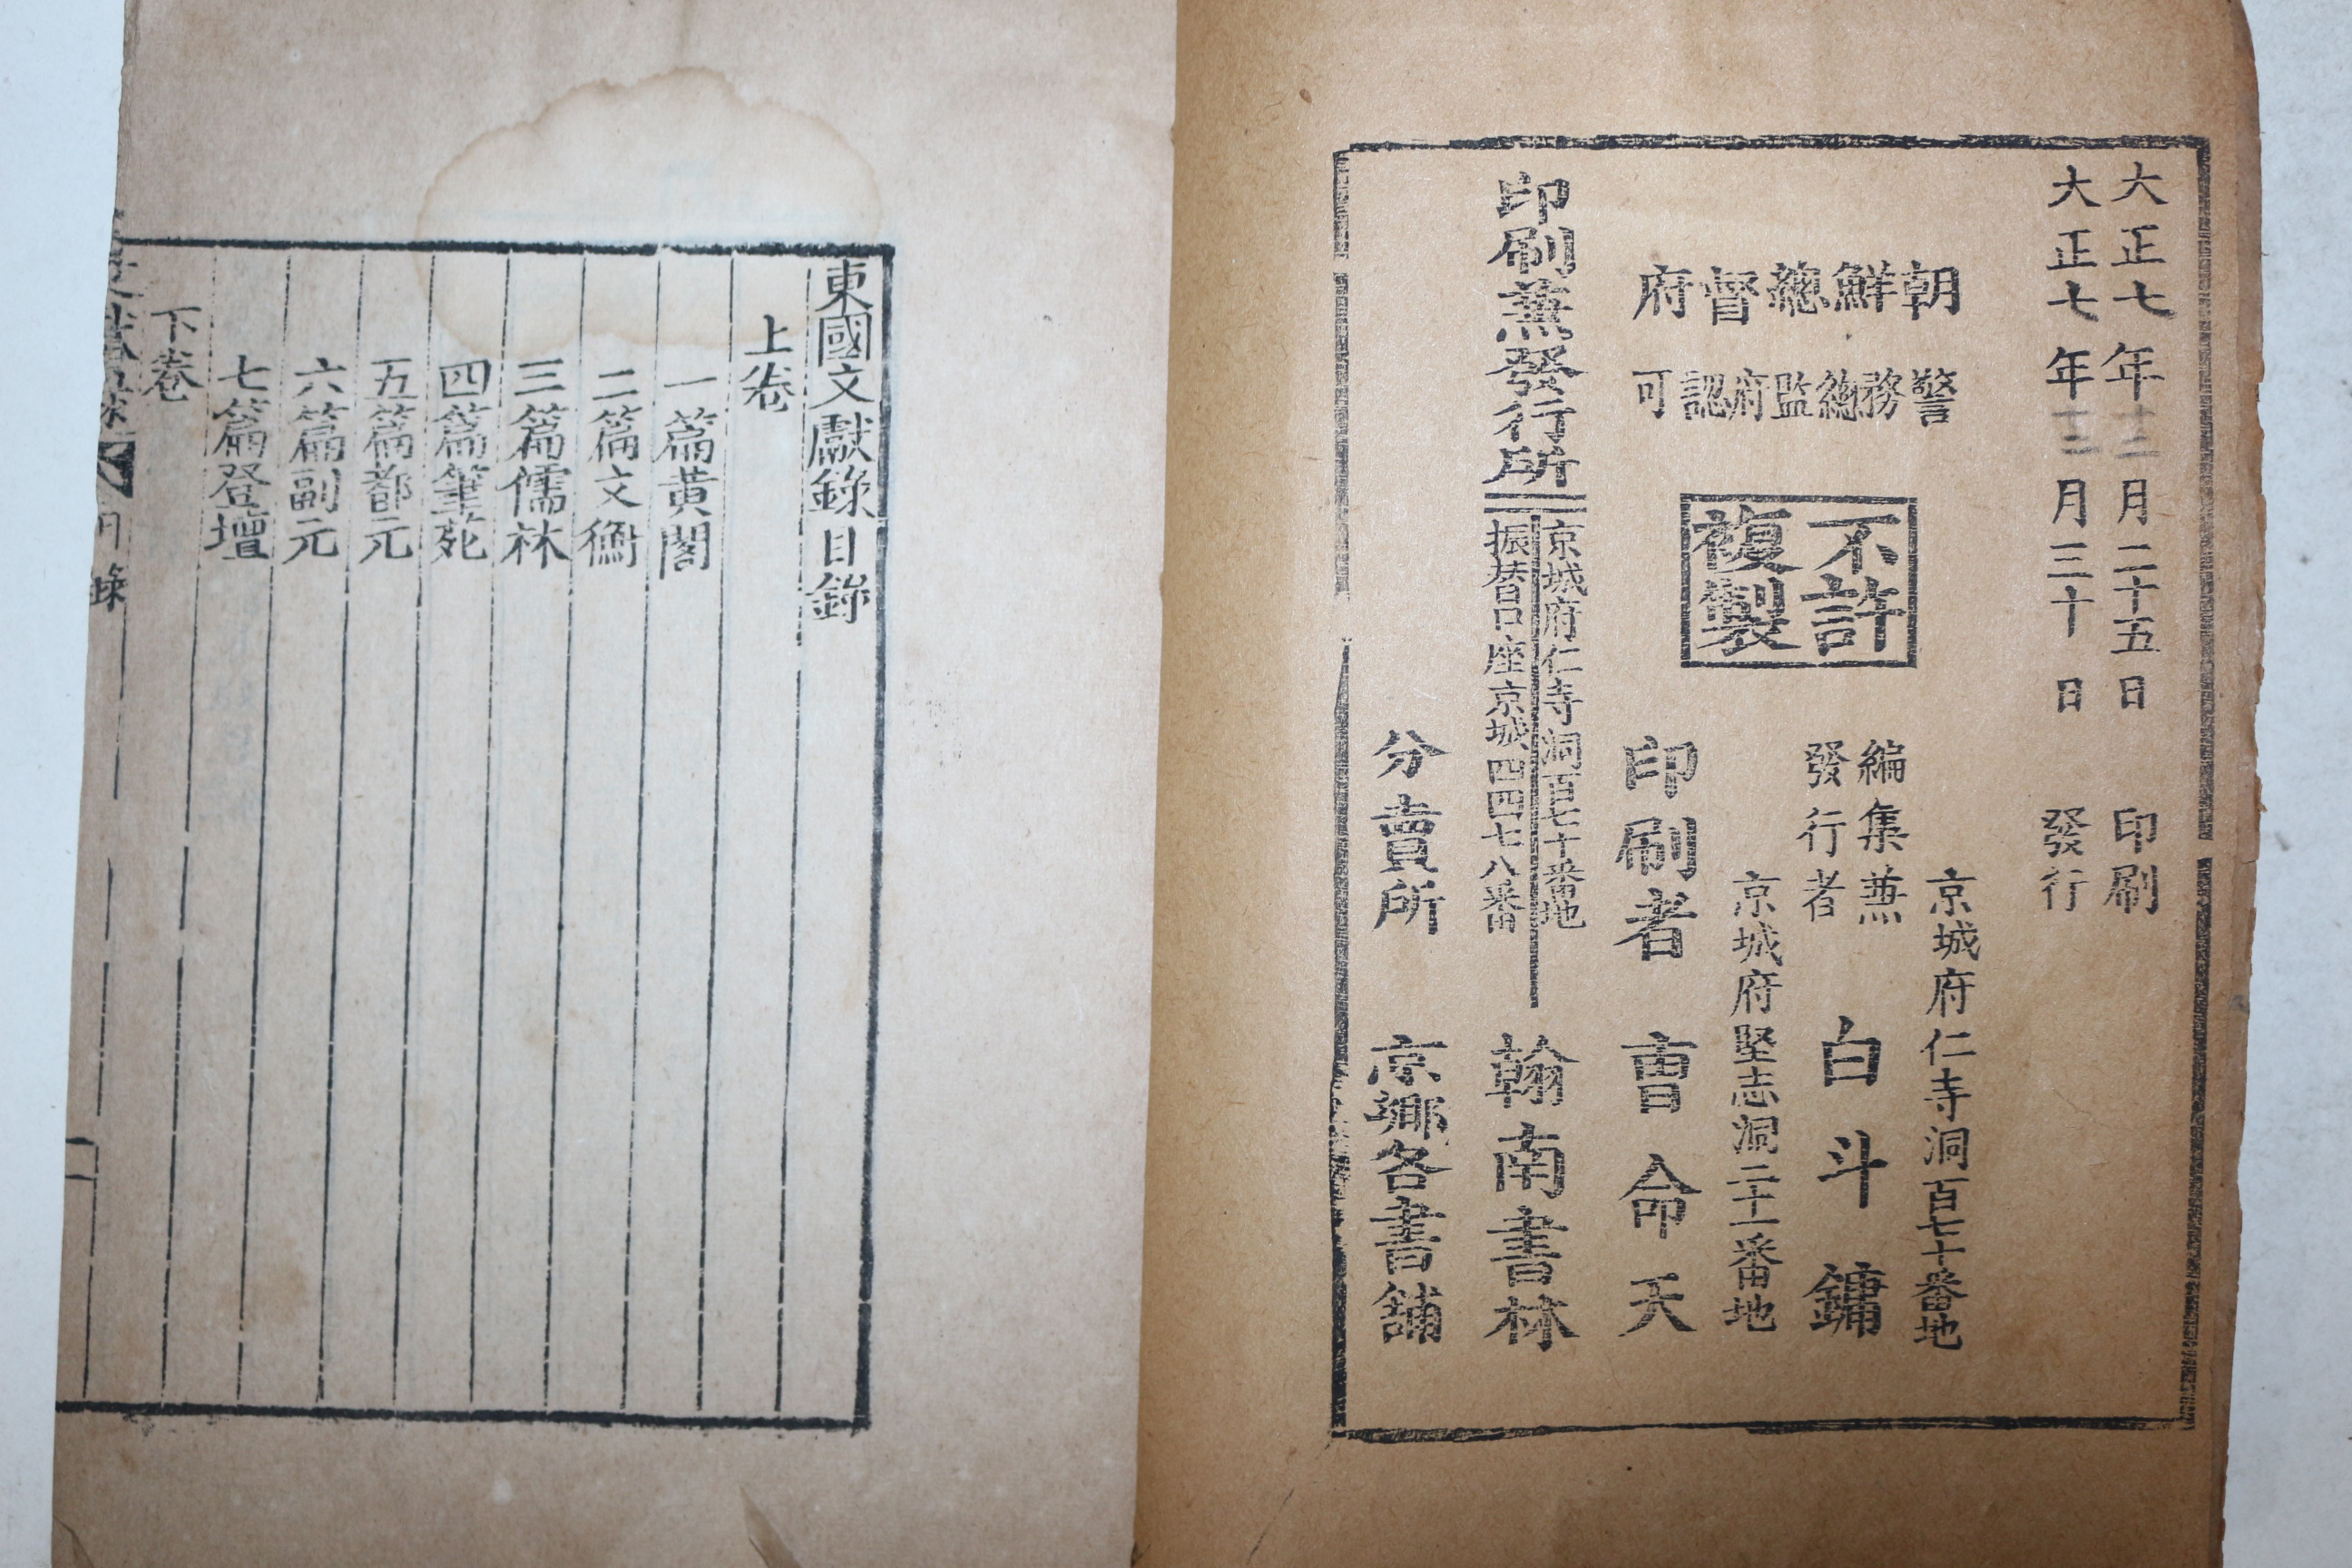 大正七年十二月二十五日 印刷
大正七年十二月三十日 發行
朝鮮總督府
警務總監府認可
不許
複製
京城府仁寺洞百七十番地
編集兼
發行者
白斗鏞
京城府堅志洞二十一番地
印刷者 曺命天
印刷兼發行所
京城府仁寺洞百七十番地
振替口座京城四四七八番
翰南書林
分賣所 京鄉各書舖
東國文獻錄目錄
上卷
一篇黃閣
二篇文衡
三篇儒林
四篇筆苑
五篇都元
六篇副元
七篇登壇
下卷
目錄